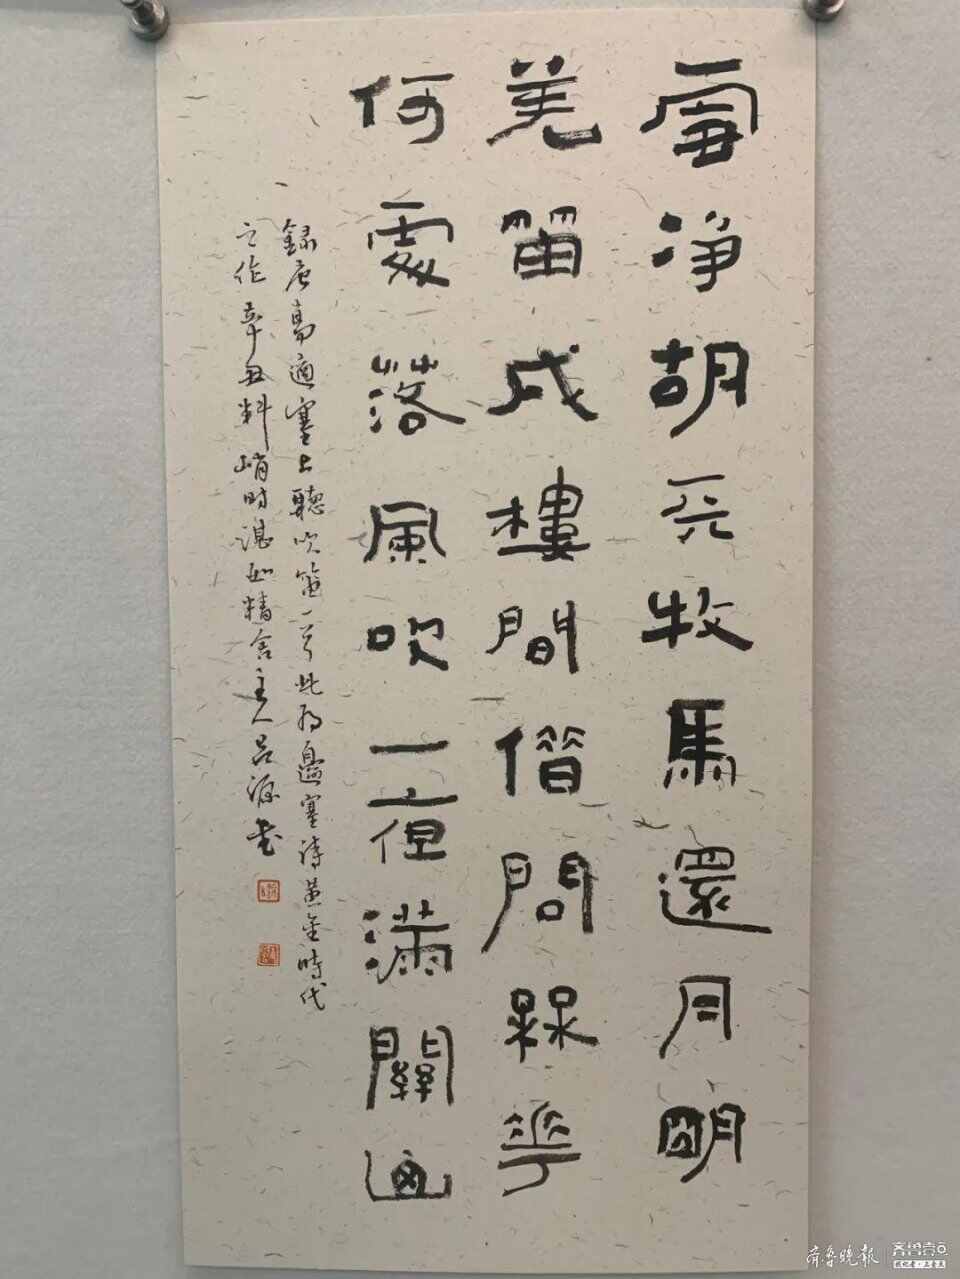 雪净胡天牧馬還月明
羌笛戍樓間借問槑華
何處落風吹一夜滿關山
録唐高適塞上聽吹笛一首此為邊塞詩黃金時代
之作辛丑料峭時湛如精舍主人呂源書
齊魯晚報
齐鲁壹点